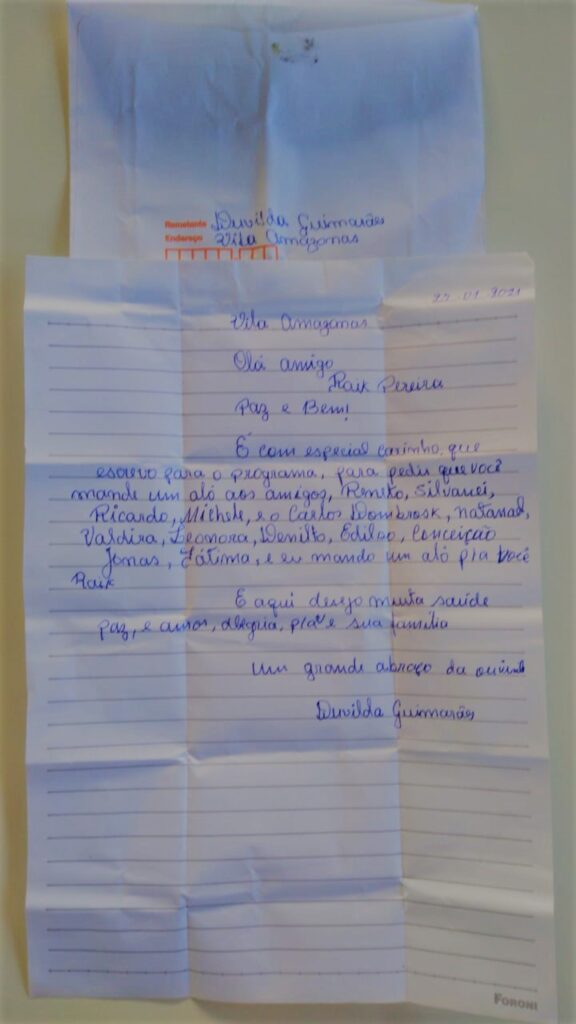 Remetente Duvilda Guimarães
Endereço Vila Amazonas
22 01 2021
Vila Amazonas
Olá amigo
Raik Pereira
Paz e Bem!
É com especial carinho, que
escrevo para o programa, para pedir que você
mande um alô aos amigos, Renato, Silvanei,
Ricardo, Michele, e o Carlos Dombrosk, natanael,
Valdira, Leonora, Danilto, Edilao, Conceição
Jonas, Fátima, e eu mando um alô p/a você
Raik
E aqui desejo muita saúde
paz, e amor, alegria, p/a v e sua família
um grande abraço da ouvinte
Duvilda Guimarães
FORONI